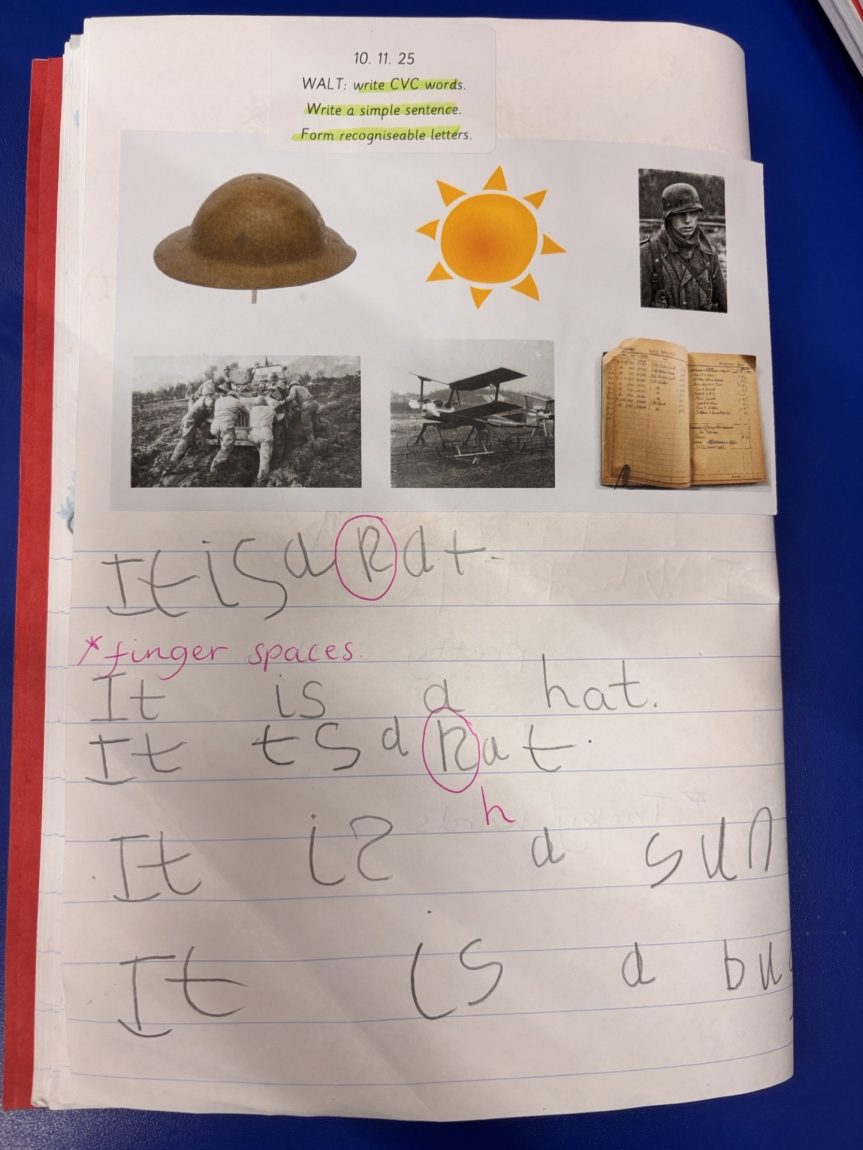 10. 11. 25
WALT: write CVC words.
Write a simple sentence.
Form recogniseable letters.
It is a Rat.
*finger spaces.
It is a hat.
It ts a Rat.
h
It is a sun
It is a bu